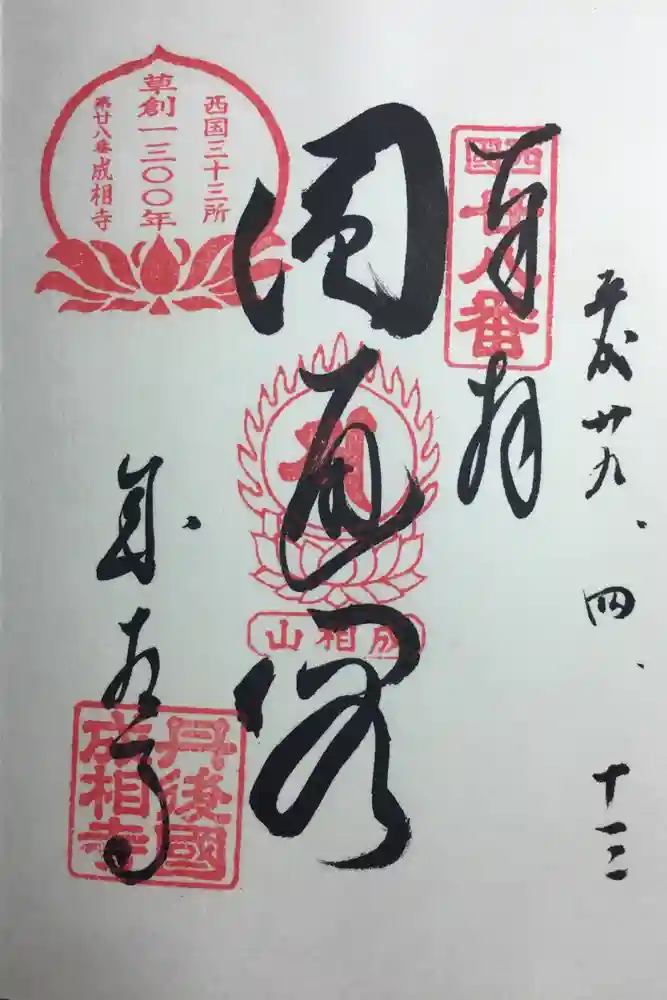 平成廿九、四、十三
奉拝
西國
廿八番
圓通閣
成相山
成相寺
西国三十三所
草創一三〇〇年
第廿八番成相寺
丹後國
成相寺